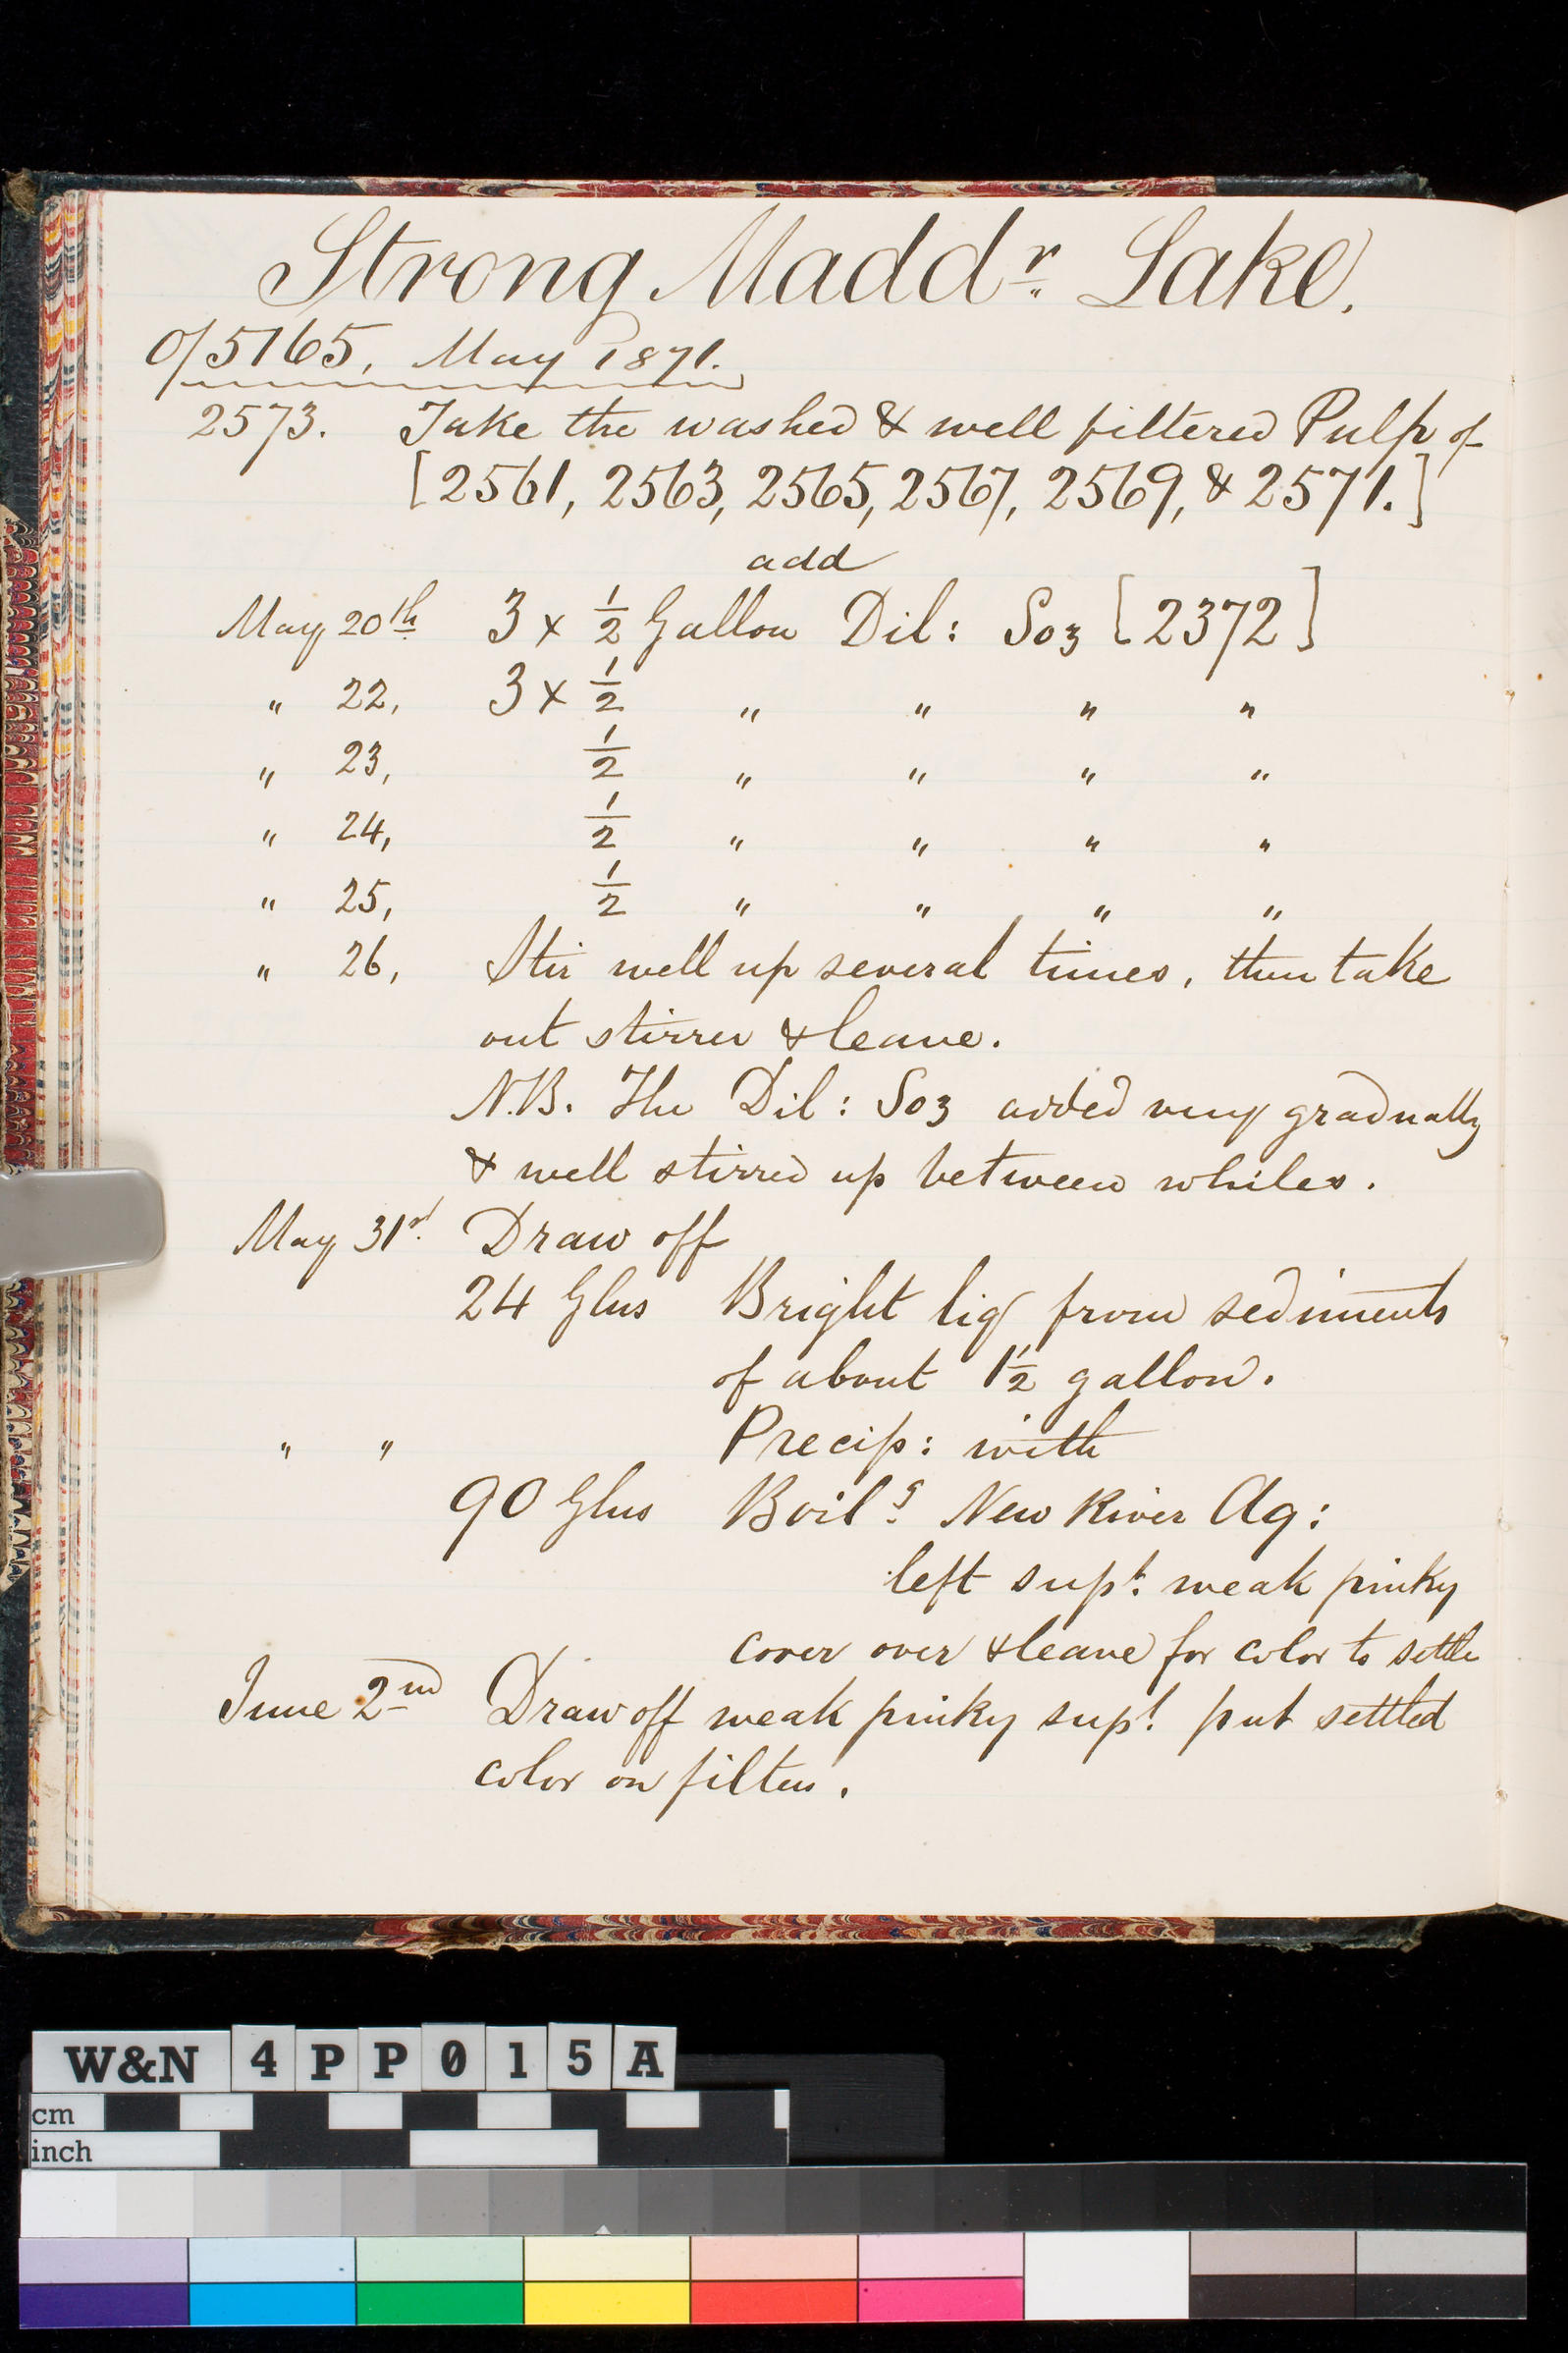 Strong Maddr. Lake.
O/5165, May 1871.
2573. Take the washed & well filtered Pulp of
[2561, 2563, 2565, 2567, 2569, & 2571.]
add
May 20th 3 x 1/2 Gallon Dil: So3 [2372]
" 22, 3 x 1/2 " " " "
" 23, 1/2 " " " "
" 24, 1/2 " " " "
" 25, 1/2 " " " "
" 26, Stir well up several times, then take
out stirrer & leave.
N.B. The Dil: So3 added very gradually
& well stirred up between whiles.
May 31st. Draw off
24 Glns Bright liq from sediments
of about 1 1/2 gallon.
" " Precip: with
90 Glns Boilg. New River Aq:
left supt. weak pinky
cover over & leave for color to settle
June 2nd Draw off weak pinky supt. put settled
color on filters.
W&N 4PP015A
cm
inch